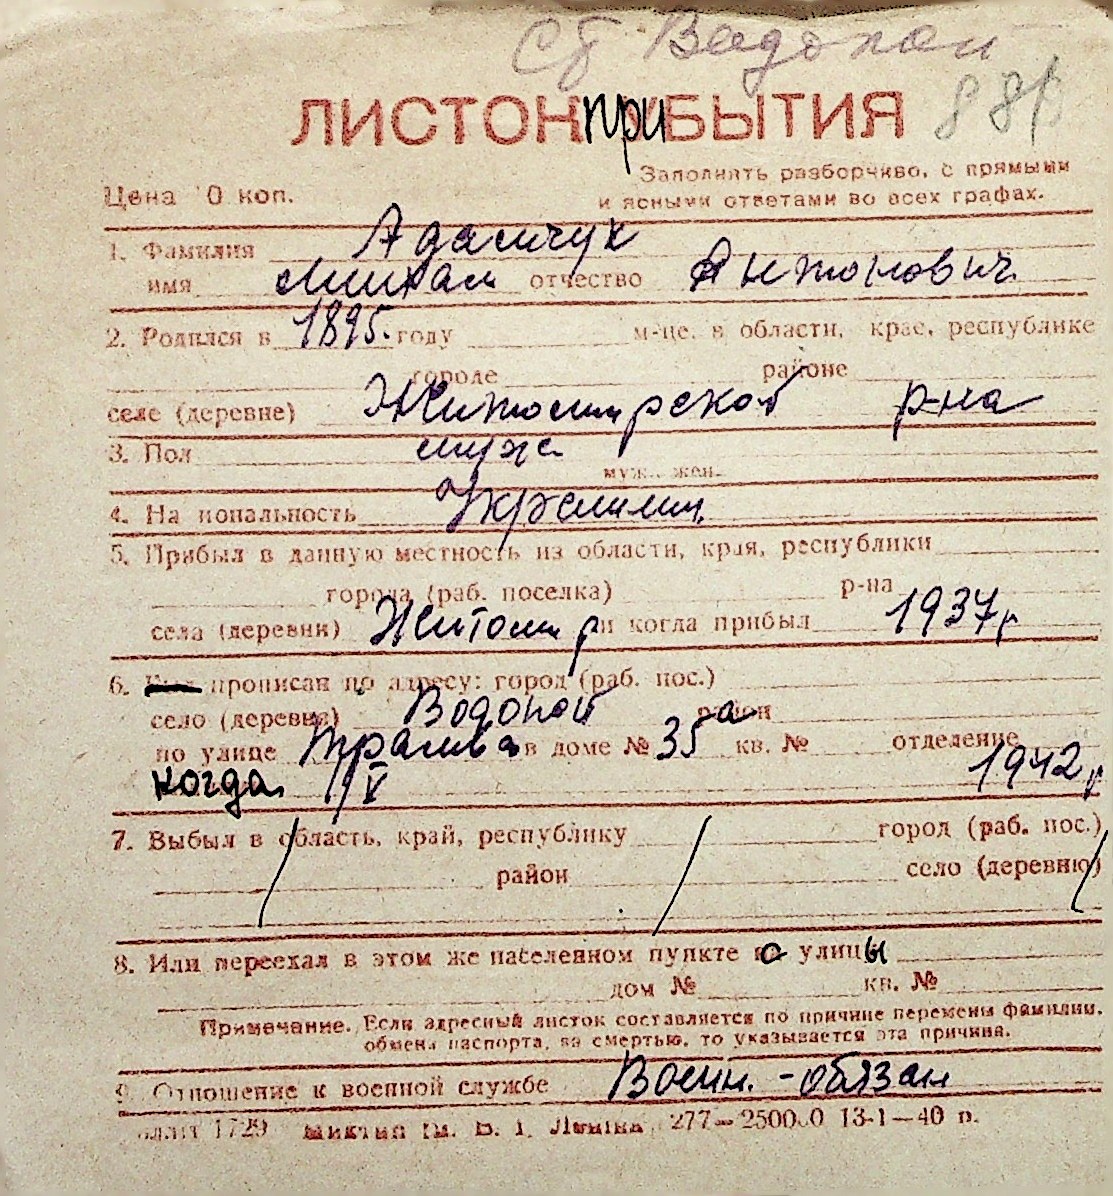 Сб Водопой
ЛИСТОК ПРИБЫТИЯ 88
Цена 10 коп. Заполнять разборчиво, с прямыми
и ясными ответами во всех графах.
1. Фамилия Адамчук
имя Михаил отчество Антонович
2. Родился в 1895. году м-це. в области, крае, республике
городе районе
селе (деревне) Житомирской р-на
3. Пол муж.
муж. жен.
4. Национальность Украинец
5. Прибыл в данную местность из области, края, республики
города (раб. поселка) р-на
села (деревни) Житомир и когда прибыл 1937 г
6. прописан по адресу: город (раб. пос.)
село (деревня) Водопой район
по улице в доме № 35 а кв. № отделение
когда 1/V 1942 г
7. Выбыл в область, край, республику город (раб. пос.)
район село (деревню)
8. Или переехал в этом же населенном пункте с улицы
дом № кв. №
Примечание. Если адресный листок составляется по причине перемены фамилии,
обмена паспорта, за смертью, то указывается эта причина.
9. Отношение к военной службе Воен. - обязан
1729 Ленина 277—250000 13-1—40 р.